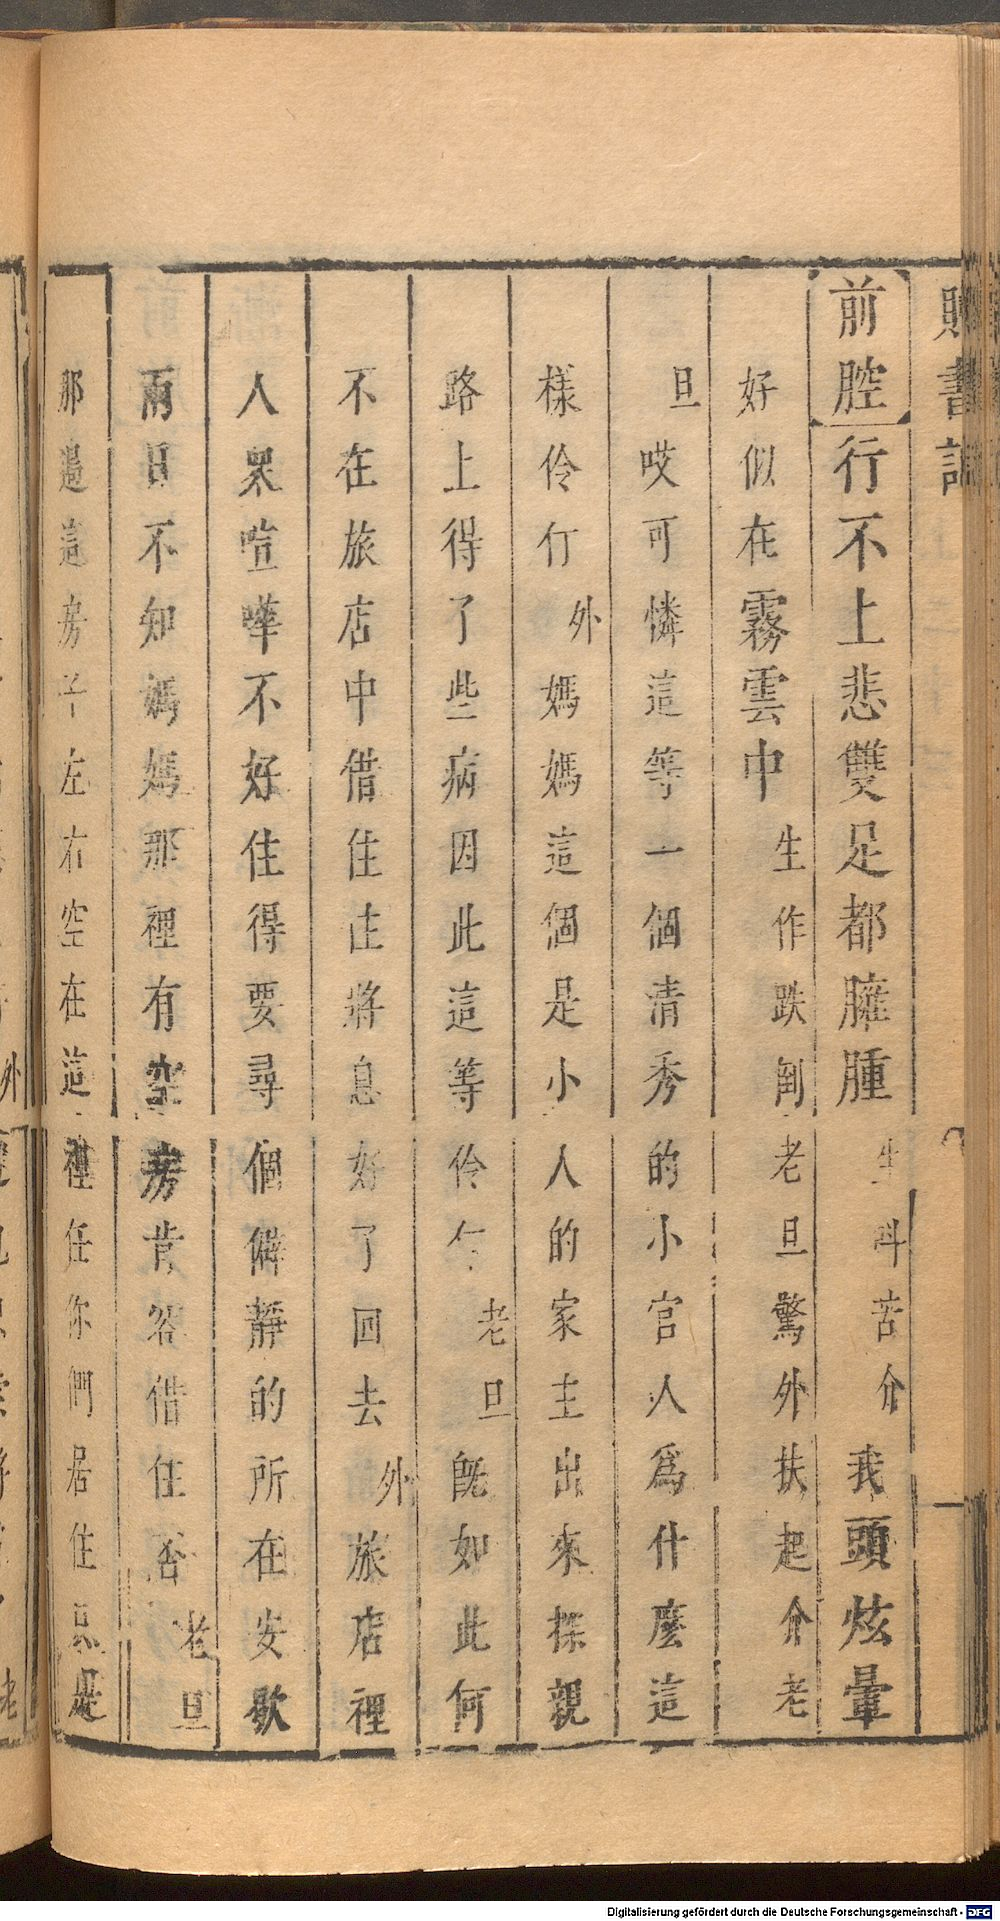 贈書記
前腔行不上悲雙足都臃腫生呌苦介我頭炫暈
好似在霧雲中生作跌倒老旦驚外扶起介老
旦哎可憐這等一個清秀的小官人爲什麼這
樣伶仃外媽媽這個是小人的家主出來探親
路上得了些病因此這等伶仃老旦旣如此何
不在旅店中借住住將息好了回去外旅店裡
人眾喧嘩不好住得要尋個僻靜的所在安歇
兩日不知媽媽那裡有空房肯容借住否老旦
那邊這房子左右空在這裡任你們居住只是
Digitalisierung gefördert durch die Deutsche Forschungsgemeinschaft - DFG